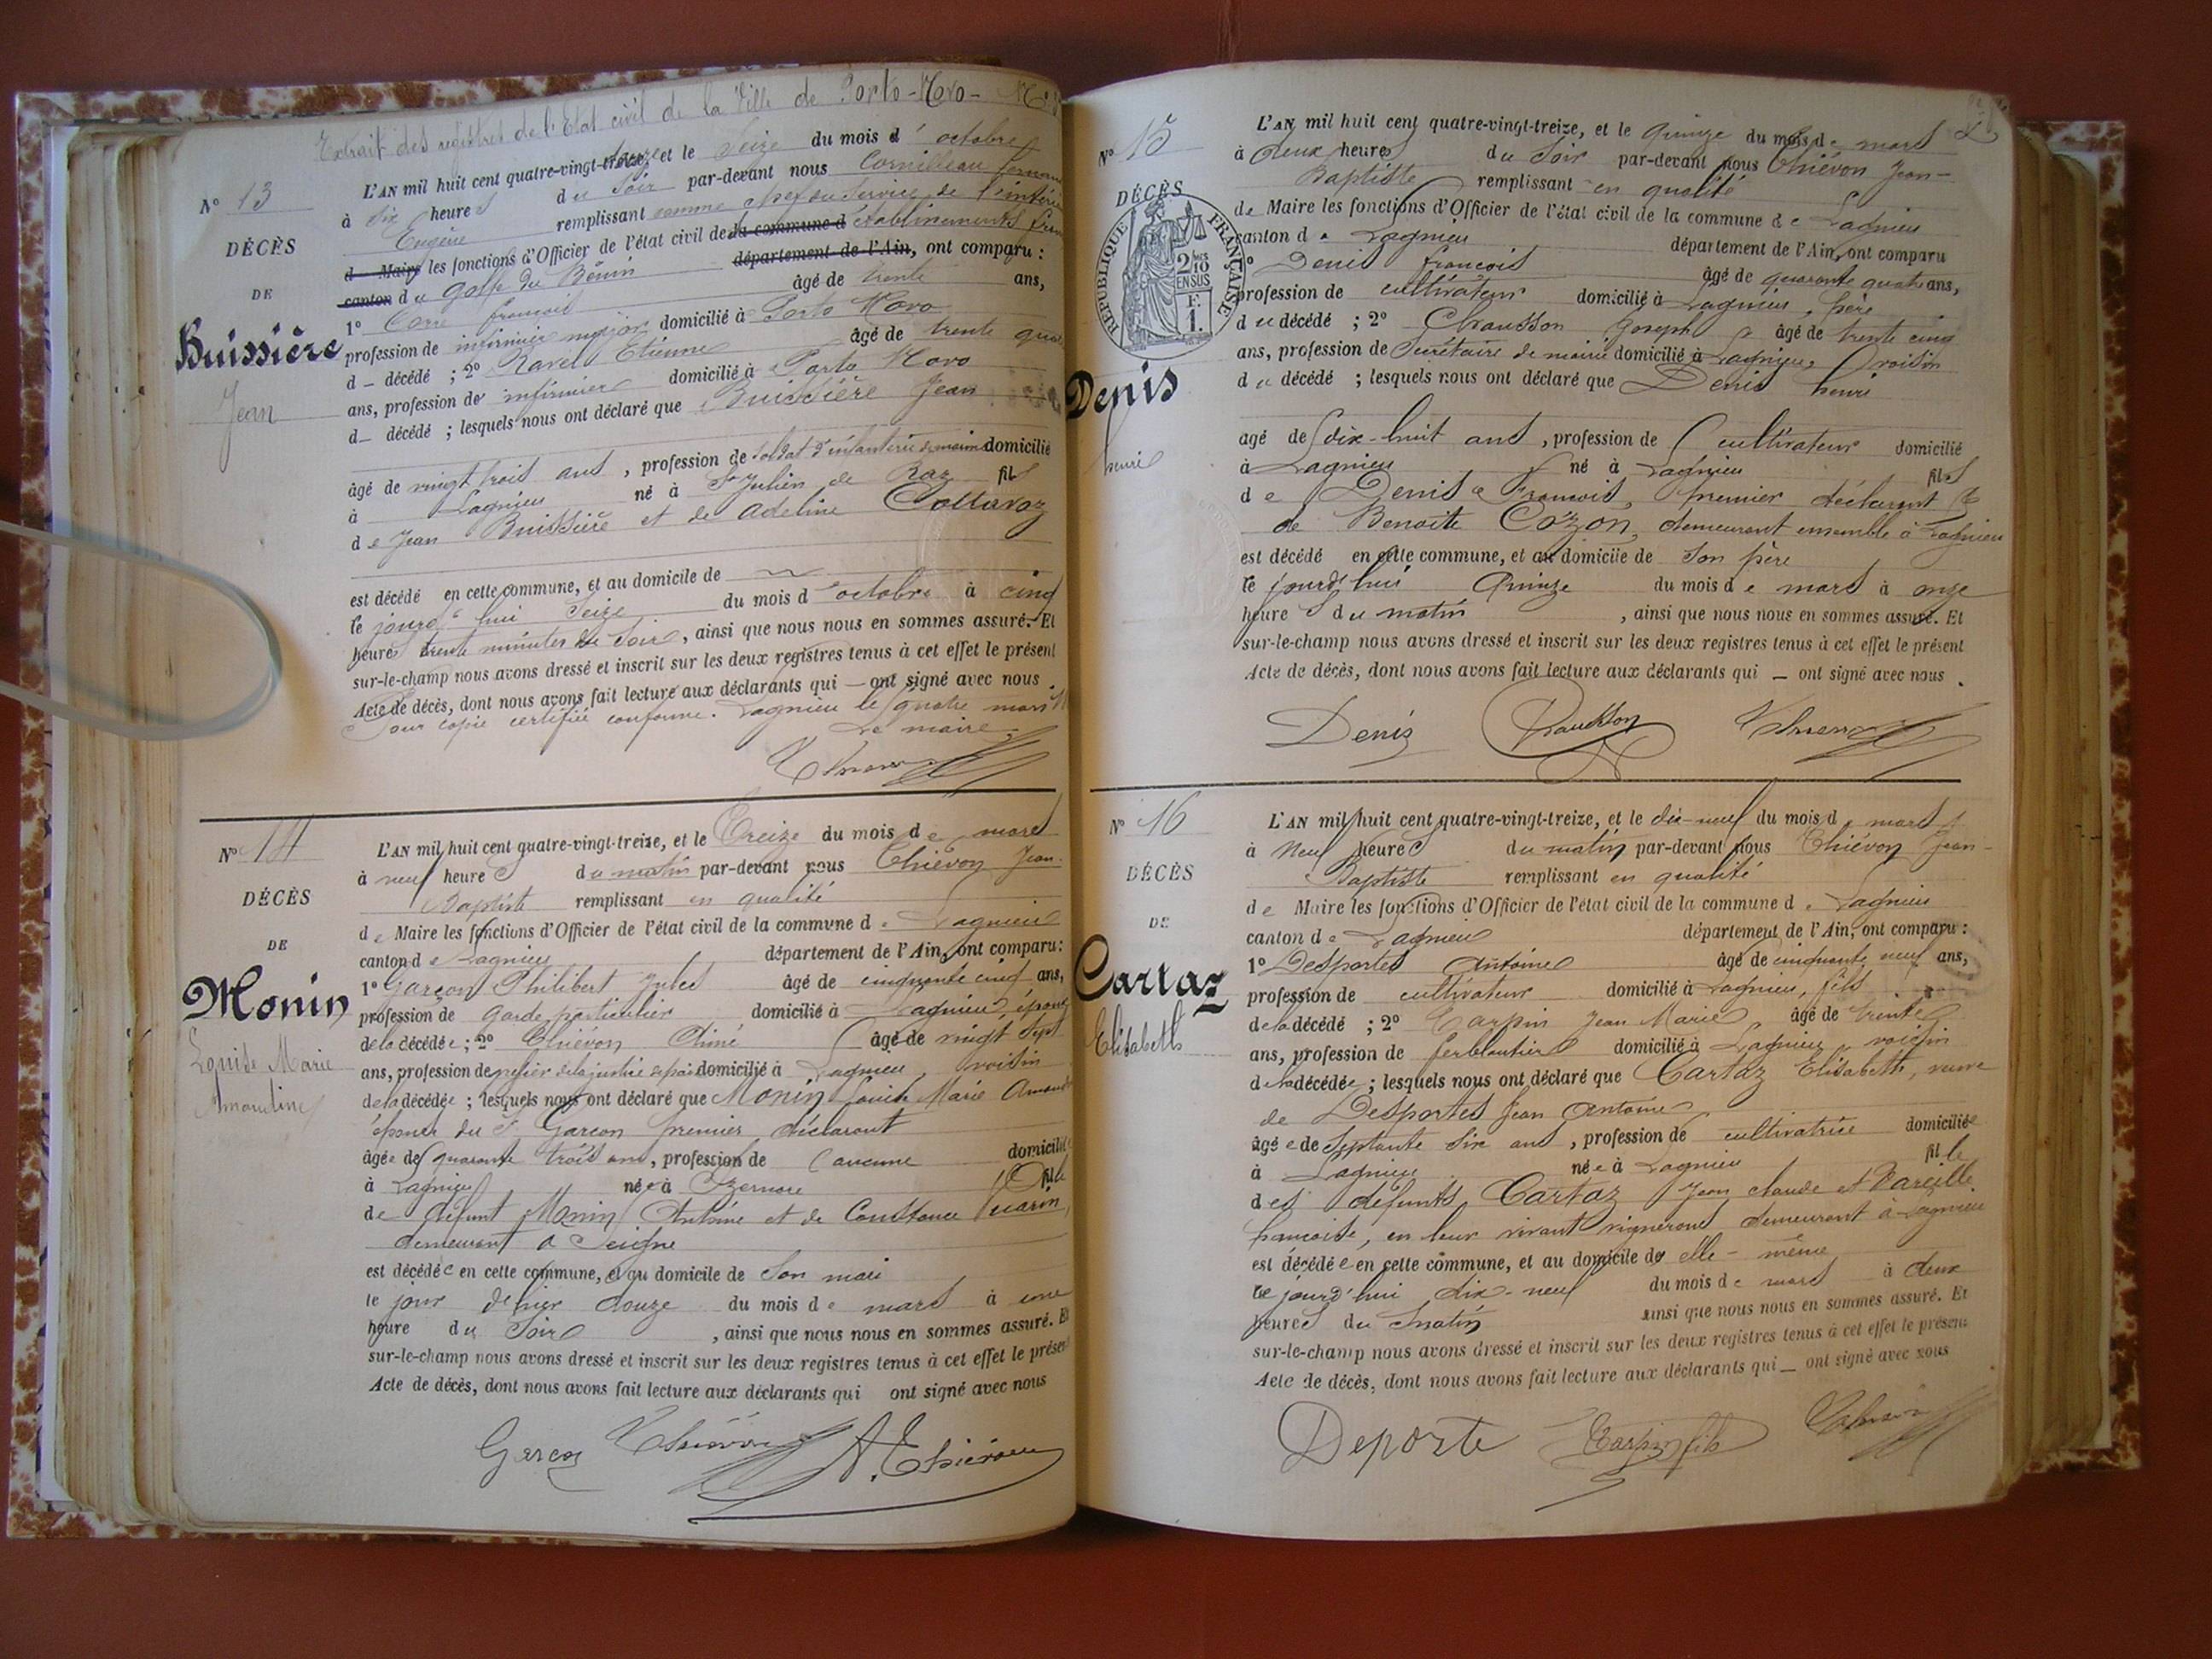 Extrait des registres de l'Etat civil de la Ville de Porto-Novo-
N° 13
DÉCÈS
DE
Buissière
Jean
L'AN mil huit cent quatre-vingt-treize, douze et le seize du mois d' octobre
à six heures du soir par-devant nous Cornilleau
Eugène remplissant comme chef du service de l'intérieur
d Maire les fonctions d'Officier de l'état civil de la commune d établissements
canton du golfe du Bénin département de l'Ain, ont comparu :
1° Corre françois âgé de trente ans,
profession de infirmier major domicilié à Porto Novo
d – décédé ; 2° Ravel Etienne âgé de trente
ans, profession de infirmier domicilié à Porto Novo
d – décédé ; lesquels nous ont déclaré que Buissière Jean
âgé de vingt trois ans, profession de soldat d'infanterie de marine domicilié
à Lagnieu né à St Julien de Raz fils
de Jean Buissière et de Adeline Collavoz
est décédé en cette commune, et au domicile de
le jourd'hui seize du mois d'octobre à cinq
heures trente minutes du soir, ainsi que nous nous en sommes assuré. Et
sur-le-champ nous avons dressé et inscrit sur les deux registres tenus à cet effet le présent
Acte de décès, dont nous avons fait lecture aux déclarants qui – ont signé avec nous.
Pour copie certifiée conforme. Lagnieu le quatre mars
Le maire
N° 14
DÉCÈS
DE
Monin
Louise Marie
Amandine
L'AN mil huit cent quatre-vingt-treize, et le Treize du mois de mars
à neuf heures du matin par-devant nous Thiévon Jean-
Baptiste remplissant en qualité
de Maire les fonctions d'Officier de l'état civil de la commune de Lagnieu
canton de Lagnieu département de l'Ain, ont comparu:
1° Garçon Philibert Jules âgé de cinquante cinq ans,
profession de garde particulier domicilié à Lagnieu, époux
de la décédée ; 2° Thiévon Aimé âgé de vingt sept
ans, profession de greffier de la justice de paix domicilié à Lagnieu, voisin
de la décédée ; lesquels nous ont déclaré que Monin Louise Marie Amandine
épouse du Sr Garçon premier déclarant
âgée de quarante trois ans, profession de aucune domiciliée
à Lagnieu née à Izernore fille
de défunt Monin Antoine et de Constance Guarin,
demeurant à Leigne
est décédée en cette commune, et au domicile de son mari
le jour d'hier douze du mois de mars à une
heure du soir, ainsi que nous nous en sommes assuré. Et
sur-le-champ nous avons dressé et inscrit sur les deux registres tenus à cet effet le présent
Acte de décès, dont nous avons fait lecture aux déclarants qui ont signé avec nous
Garçon Thiévon A. Thiévon
N° 15
DÉCÈS
RÉPUBLIQUE FRANÇAISE
2/10 EN SUS
F. 1.
Denis
henri
L'AN mil huit cent quatre-vingt-treize, et le quinze du mois de mars
à deux heures du soir par-devant nous Thiévon Jean-
Baptiste remplissant en qualité
de Maire les fonctions d'Officier de l'état civil de la commune de Lagnieu
canton de Lagnieu département de l'Ain, ont comparu
1° Denis françois âgé de quarante quatre ans,
profession de cultivateur domicilié à Lagnieu, père
du décédé ; 2° Chausson Joseph âgé de trente cinq
ans, profession de Secrétaire de mairie domicilié à Lagnieu, voisin
du décédé ; lesquels nous ont déclaré que Denis henri
agé de dix-huit ans, profession de cultivateur domicilié
à Lagnieu né à Lagnieu fils
de Denis François, premier déclarant &
de Benoite Cozon, demeurant ensemble à Lagnieu
est décédé en cette commune, et au domicile de son père
le jourd'hui Quinze du mois de mars à onze
heures du matin, ainsi que nous nous en sommes assuré. Et
sur-le-champ nous avons dressé et inscrit sur les deux registres tenus à cet effet le présent
Acte de décès, dont nous avons fait lecture aux déclarants qui – ont signé avec nous.
Denis Chausson Thiévon
N° 16
DÉCÈS
DE
Cartaz
Elisabeth
L'AN mil huit cent quatre-vingt-treize, et le dix-neuf du mois de mars
à neuf heures du matin par-devant nous Thiévon Jean-
Baptiste remplissant en qualité
de Maire les fonctions d'Officier de l'état civil de la commune de Lagnieu
canton de Lagnieu département de l'Ain, ont comparu :
1° Desportes Antoine âgé de cinquante neuf ans,
profession de cultivateur domicilié à Lagnieu, fils
de la décédé ; 2° Carpin Jean Marie, âgé de trente
ans, profession de ferblantier domicilié à Lagnieu, voisin
de la décédée ; lesquels nous ont déclaré que Cartaz Elisabeth, veuve
de Desportes Jean Antoine
âgée de septante six ans, profession de cultivatrice domiciliée
à Lagnieu née à Lagnieu fille
des défunts Cartaz Jean claude et Pareille
françoise, en leur vivant vignerons demeurant à Lagnieu
est décédée en cette commune, et au domicile de elle-même
le jourd'hui dix-neuf du mois de mars à deux
heures du matin ainsi que nous nous en sommes assuré. Et
sur-le-champ nous avons dressé et inscrit sur les deux registres tenus à cet effet le présent
Acte de décès, dont nous avons fait lecture aux déclarants qui – ont signé avec nous
Deporte Carpin fils Thiévon